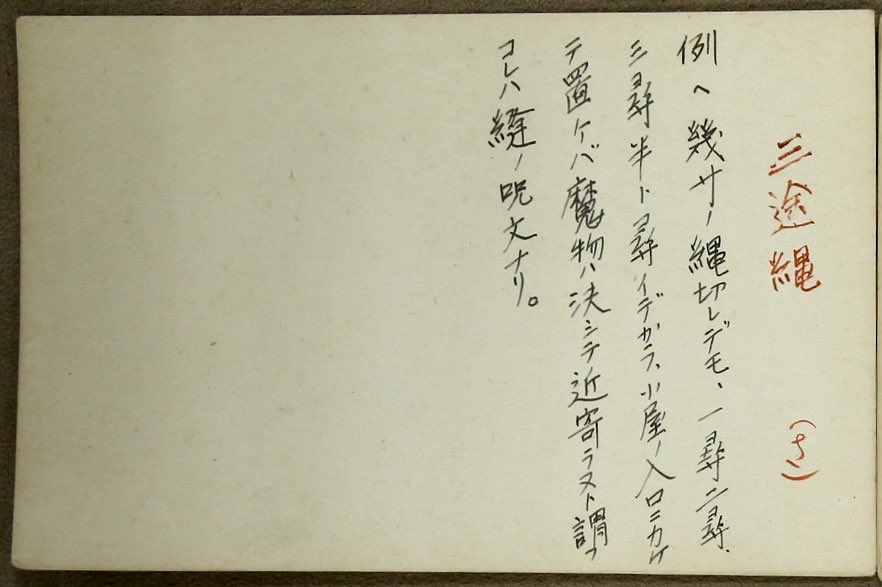 三途縄 (さ)
例ヘ幾サノ縄切レデモ、一尋二尋、
三尋半ト尋イデカラ、小屋ノ入口ニカケ
テ置ケバ魔物ハ決シテ近寄ラヌト謂フ
コレハ縫ノ呪文ナリ。